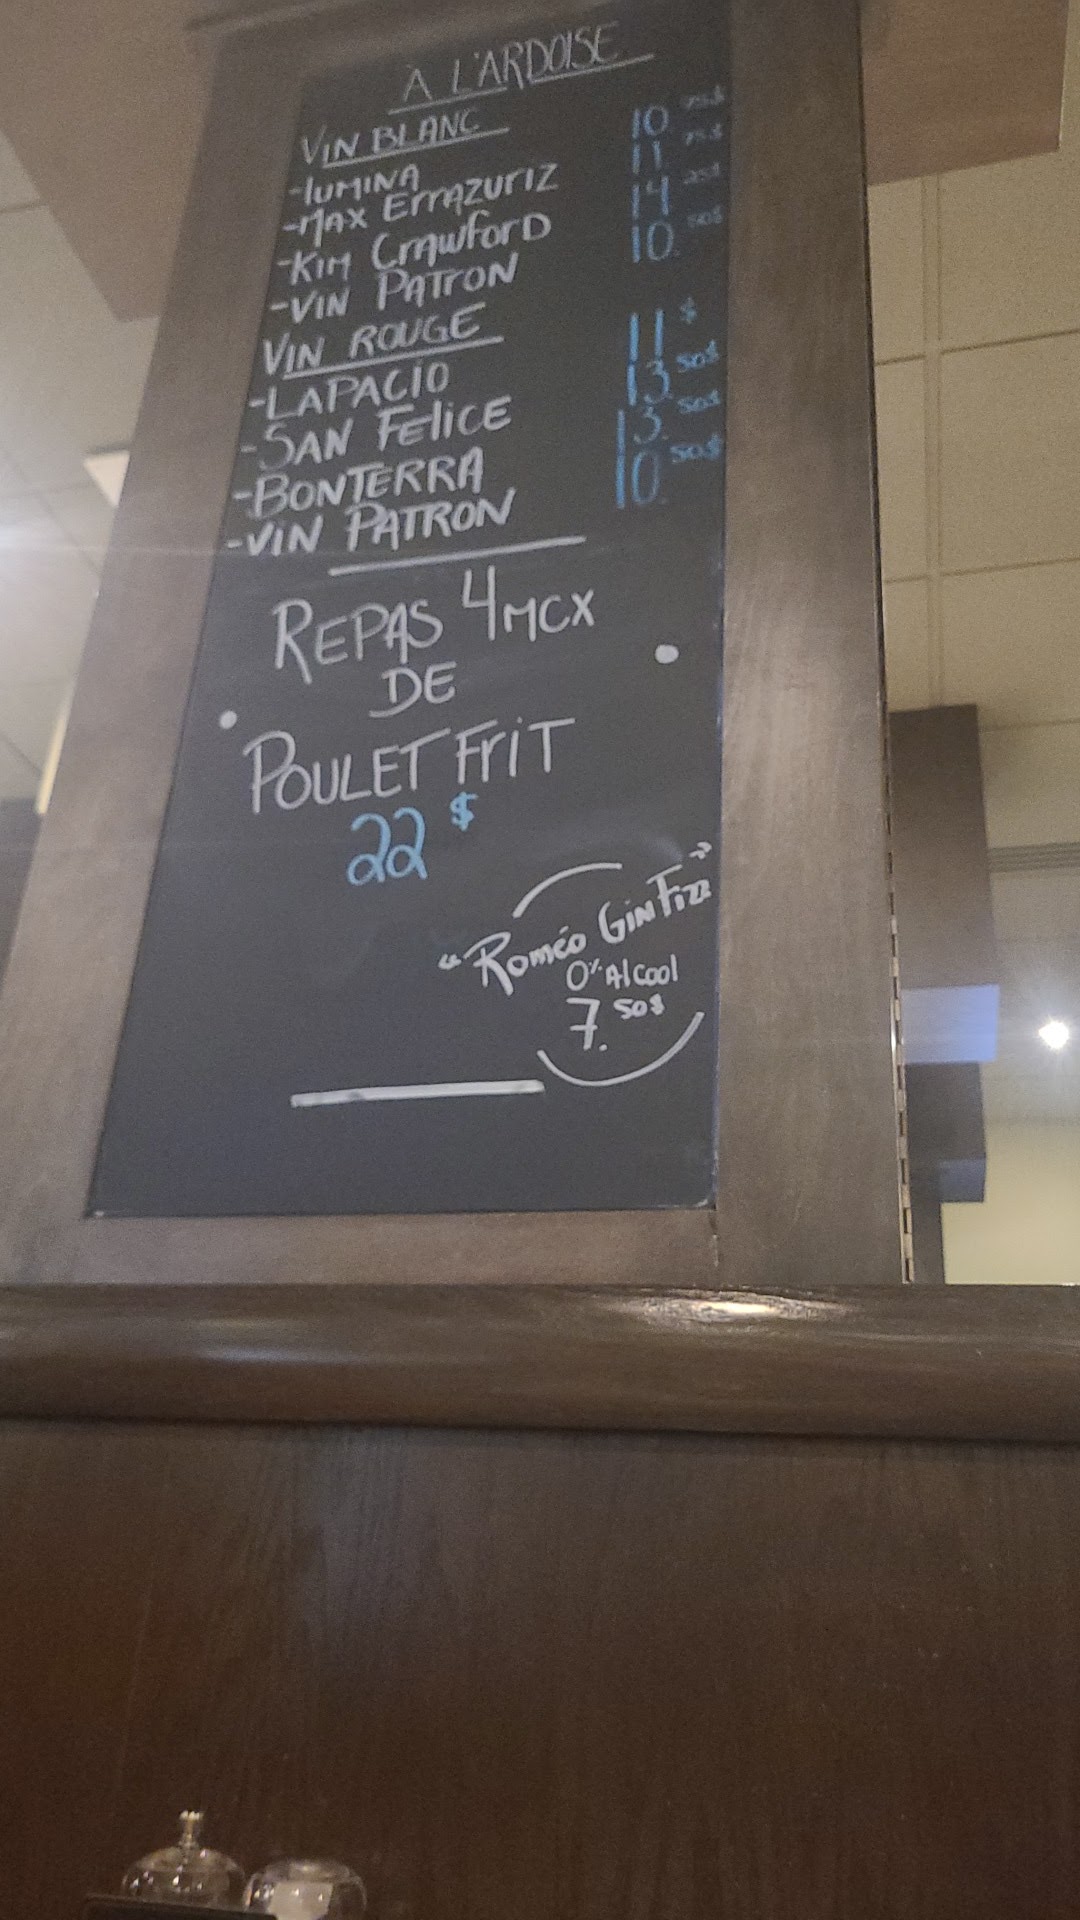 À L'ARDOISE
VIN BLANC
-lUMINA 10.75$
-MAX ErrAZUrIZ 11.75$
-KIM CrAWForD 14.25$
-VIN PATrON 10.50$
VIN ROUGE
-LAPACIO 11$
-SAN FeliCE 13.50$
-BONTERRA 13.50$
-VIN PATRON 10.50$
REPAS 4MCX
DE
POULET FriT
22$
"Roméo GiN Fizz"
0% Alcool
7.50$